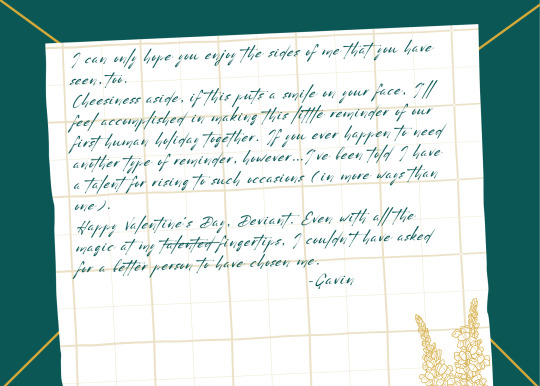 I can only hope you enjoy the sides of me that you have
seen, too.
Cheesiness aside, if this puts a smile on your face, I'll
feel accomplished in making this little reminder of our
first human holiday together. If you ever happen to need
another type of reminder, however...I've been told I have
a talent for rising to such occasions (in more ways than
one).
Happy Valentine's Day, Deviant. Even with all the
magic at my talented fingertips, I couldn't have asked
for a better person to have chosen me.
-Gavin